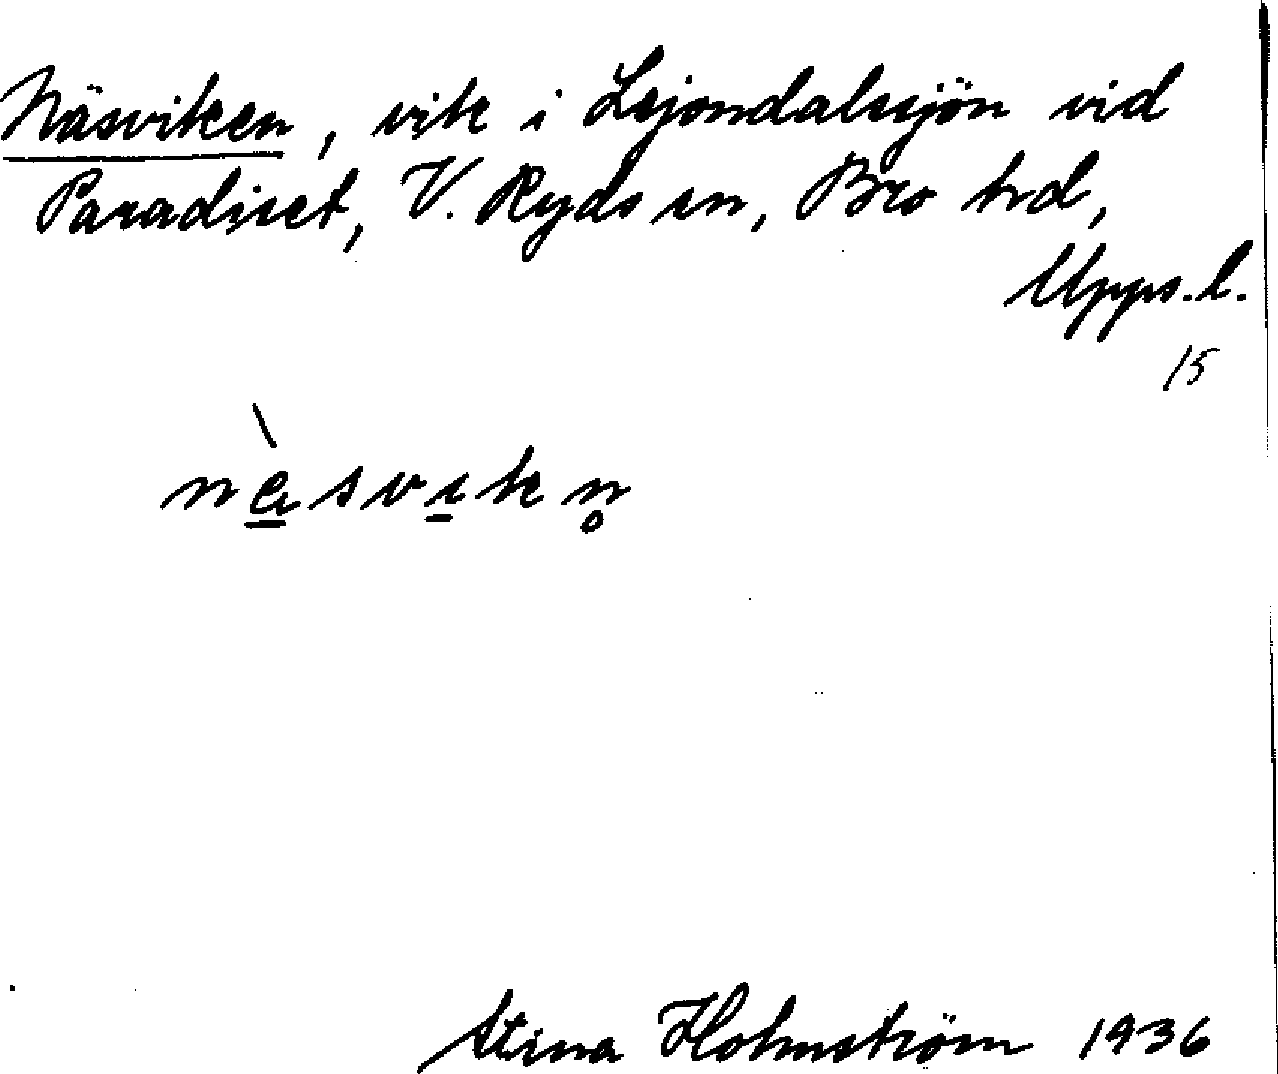 Näsviken, vik i Lejondalssjön vid
Paradiset, V. Ryds sn, Bro hd,
Upps. l.
15
nä̀svikn̥
Stina Holmström 1936